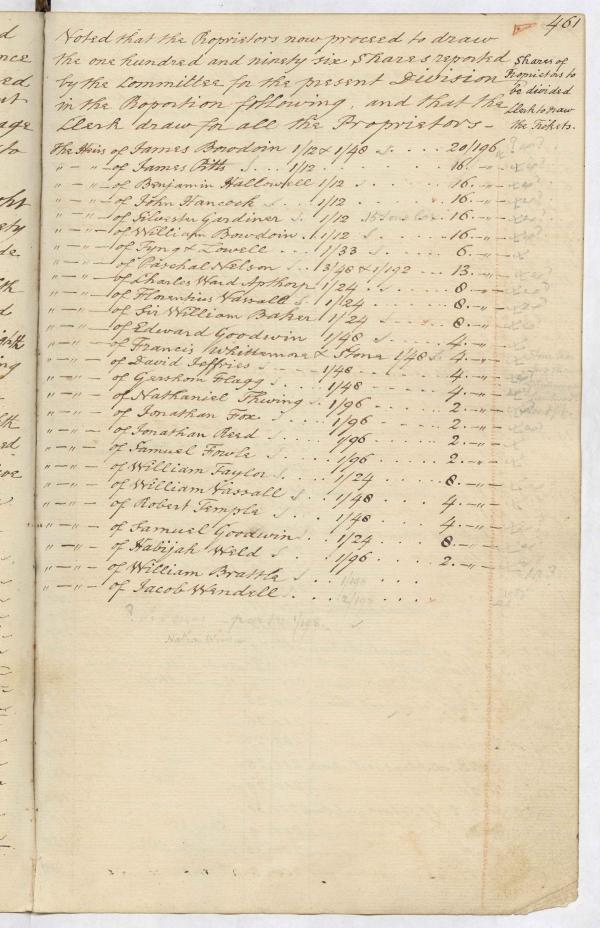 461
Voted that the Proprietors now proceed to draw
the one hundred and ninety six Shares reported
by the Committee for the present Division
in the Poportion following, and that the
Clerk draw for all the Proprietors —
Shares of
Proprietors to
be divided
Clerk to draw
the Tickets.
The Heirs of James Bowdoin 1/12 & 1/48 . . . . 20/196
" — " — of James Pitts . . . 1/12 . . . . 16. — " —
" — " — of Benjamin Hallowell 1/12 . . . . 16. — " —
" — " — of John Hancock . . 1/12 . . . . 16. — " —
" — " — of Silvester Gardiner . 1/12 . . 16. — " —
" — " — of William Bowdoin . 1/12 . . . . 16. — " —
" — " — of Tyng & Lowell . . . 1/33 . . . . 6. — " —
" — " — of Paschal Nelson . . 3/48 & 1/192 . . . 13. — " —
" — " — of Charles Ward Apthorp 1/24 . . . . 8 — " —
" — " — of Florentius Vassall . 1/24 . . . . 8 — " —
" — " — of Sir William Baker 1/24 . . . . 8. — " —
" — " — of Edward Goodwin 1/48 . . . . 4. — " —
" — " — of Francis Whittemore & Stone 1/48 . . 4. — " —
" — " — of David Jeffries . . . 1/48 . . . . 4. — " —
" — " — of Gershom Flagg . . . 1/48 . . . . 4. — " —
" — " — of Nathaniel Thwing . 1/96 . . . . 2. — " —
" — " — of Jonathan Fox . . . 1/96 . . . . 2. — " —
" — " — of Jonathan Reed . . . 1/96 . . . . 2. — " —
" — " — of Samuel Fowle . . . 1/96 . . . . 2. — " —
" — " — of William Taylor . . . 1/24 . . . . 8 — " —
" — " — of William Vassall . . 1/48 . . . . 4. — " —
" — " — of Robert Temple . . . 1/48 . . . . 4. — " —
" — " — of Samuel Goodwin . . 1/24 . . . . 8. — " —
" — " — of Habijah Weld . . . 1/96 . . . . 2. — " —
" — " — of William Brattle . . . 1/198 . . . .
" — " — of Jacob Wendell . . . 2/198 . . . .